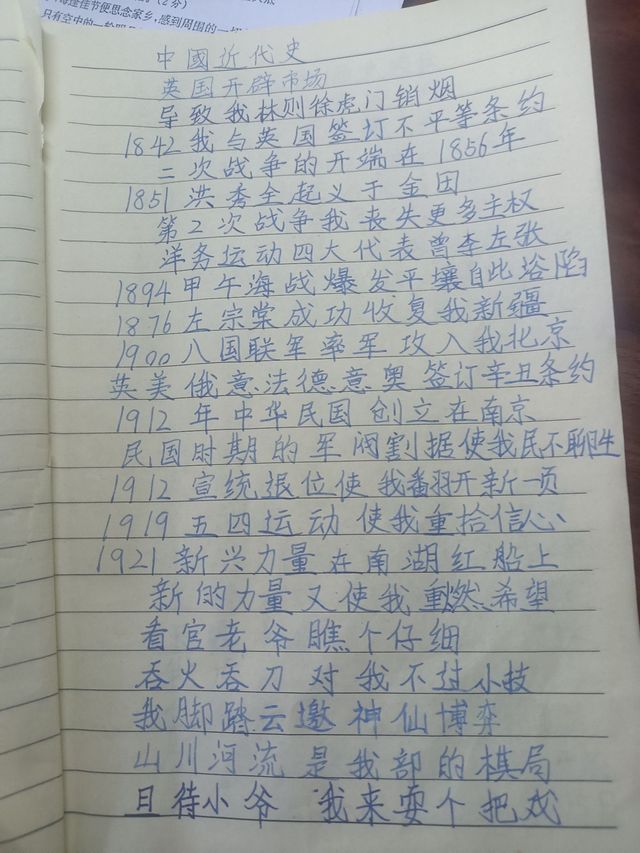 海逢佳节便思念家乡,感到周围的一切
只有空中的一轮明
中國近代史
英国开辟市场
导致我林则徐虎门销烟
1842我与英国签订不平等条约
二次战争的开端在1856年
1851洪秀全起义于金田
第2次战争我丧失更多主权
洋务运动四大代表曾李左张
1894甲午海战爆发平壤自此沦陷
1876左宗棠成功收复我新疆
1900八国联军率军攻入我北京
英美俄意法德意奥签订辛丑条约
1912年中华民国创立在南京
民国时期的军阀割据使我民不聊生
1912宣统退位使我翻开新一页
1919五四运动使我重拾信心
1921新兴力量在南湖红船上
新的力量又使我重燃希望
看官老爷瞧个仔细
吞火吞刀对我不过小技
我脚踏云邀神仙博弈
山川河流是我部的棋局
且待小爷 我来耍个把戏